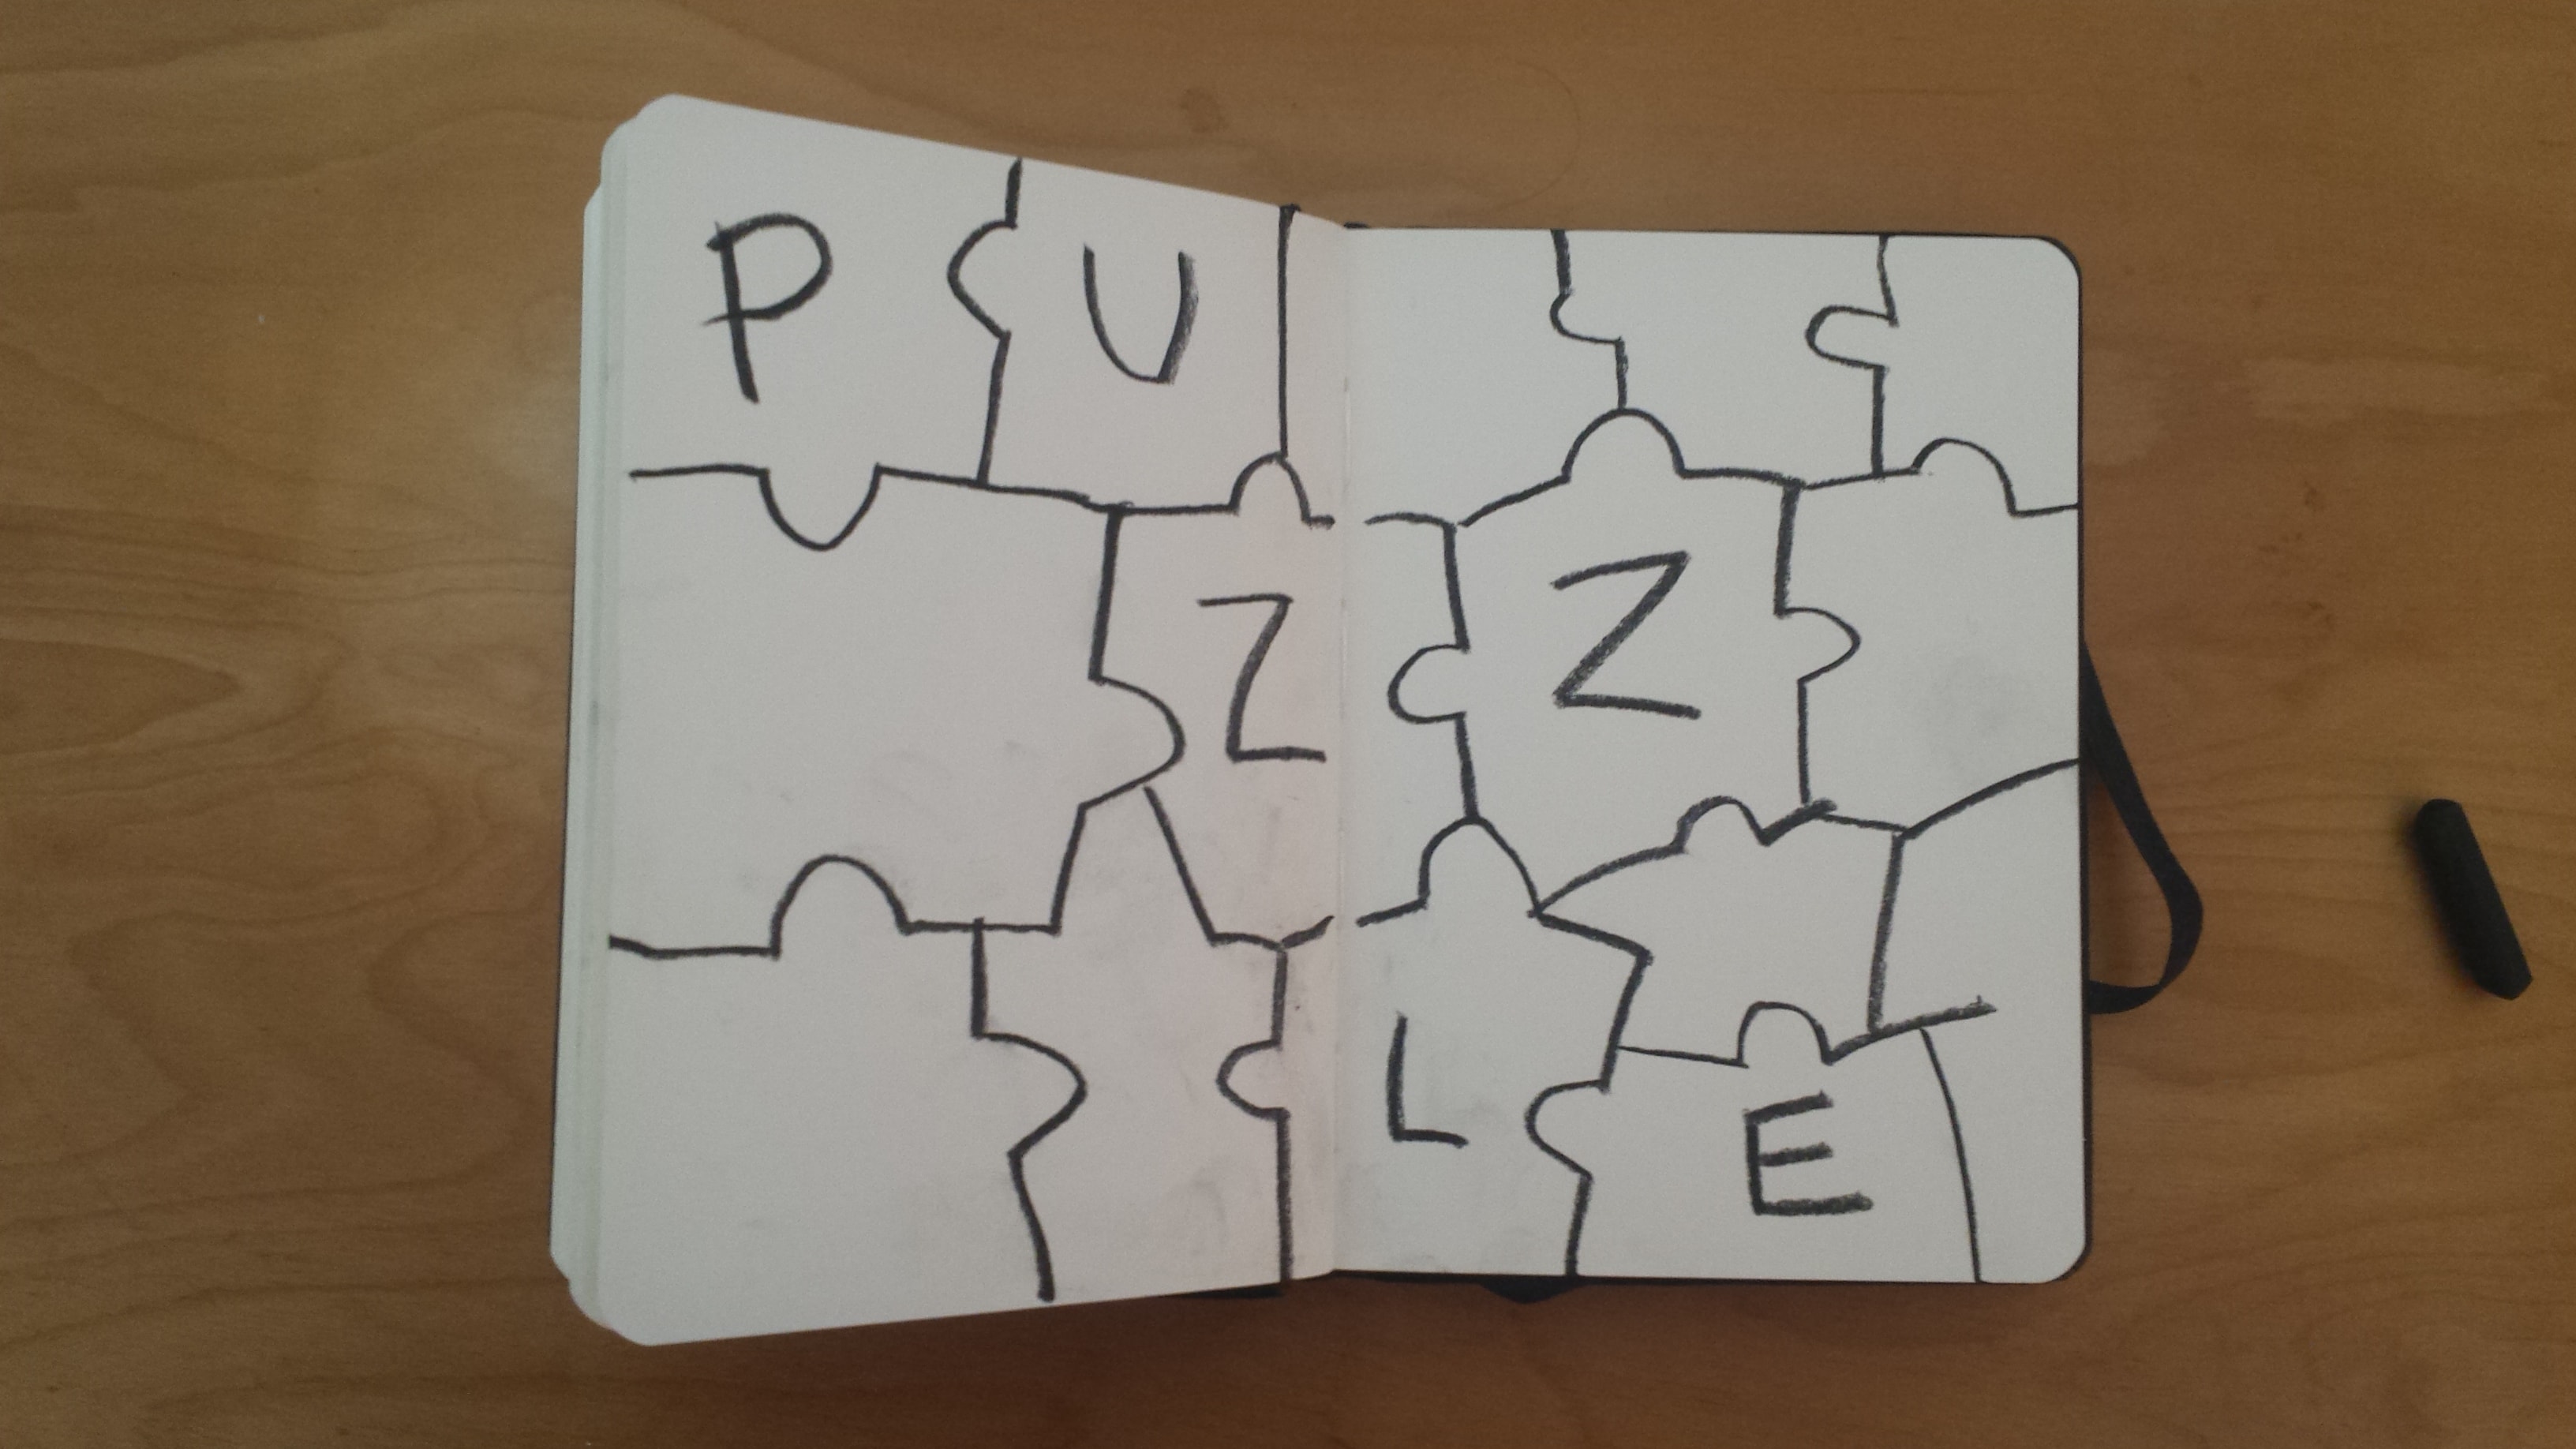 PU
ZZ
LE